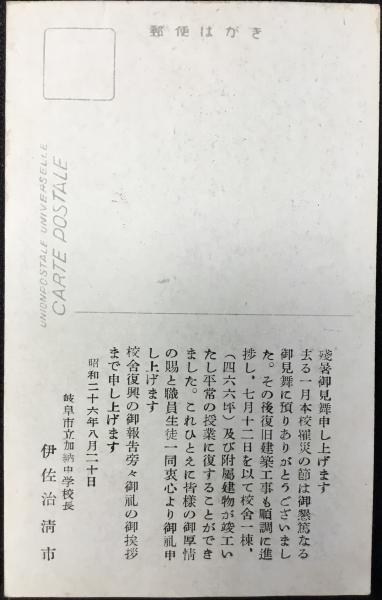 郵便はがき
UNION POSTALE UNIVERSELLE
CARTE POSTALE
残暑御見舞申し上げます
去る一月本校罹災の節は御懇篤なる
御見舞に預りありがとうございまし
た。その後復旧建築工事も順調に進
捗し、七月十二日を以て校舎一棟、
(四六六坪)及び附属建物が竣工い
たし平常の授業に復することができ
ました。これひとえに皆様の御厚情
の賜と職員生徒一同衷心より御礼申
し上げます
校舎復興の御報告旁々御礼の御挨拶
まで申し上げます
昭和二十六年八月二十日
岐阜市立加納中学校長
伊佐治清市